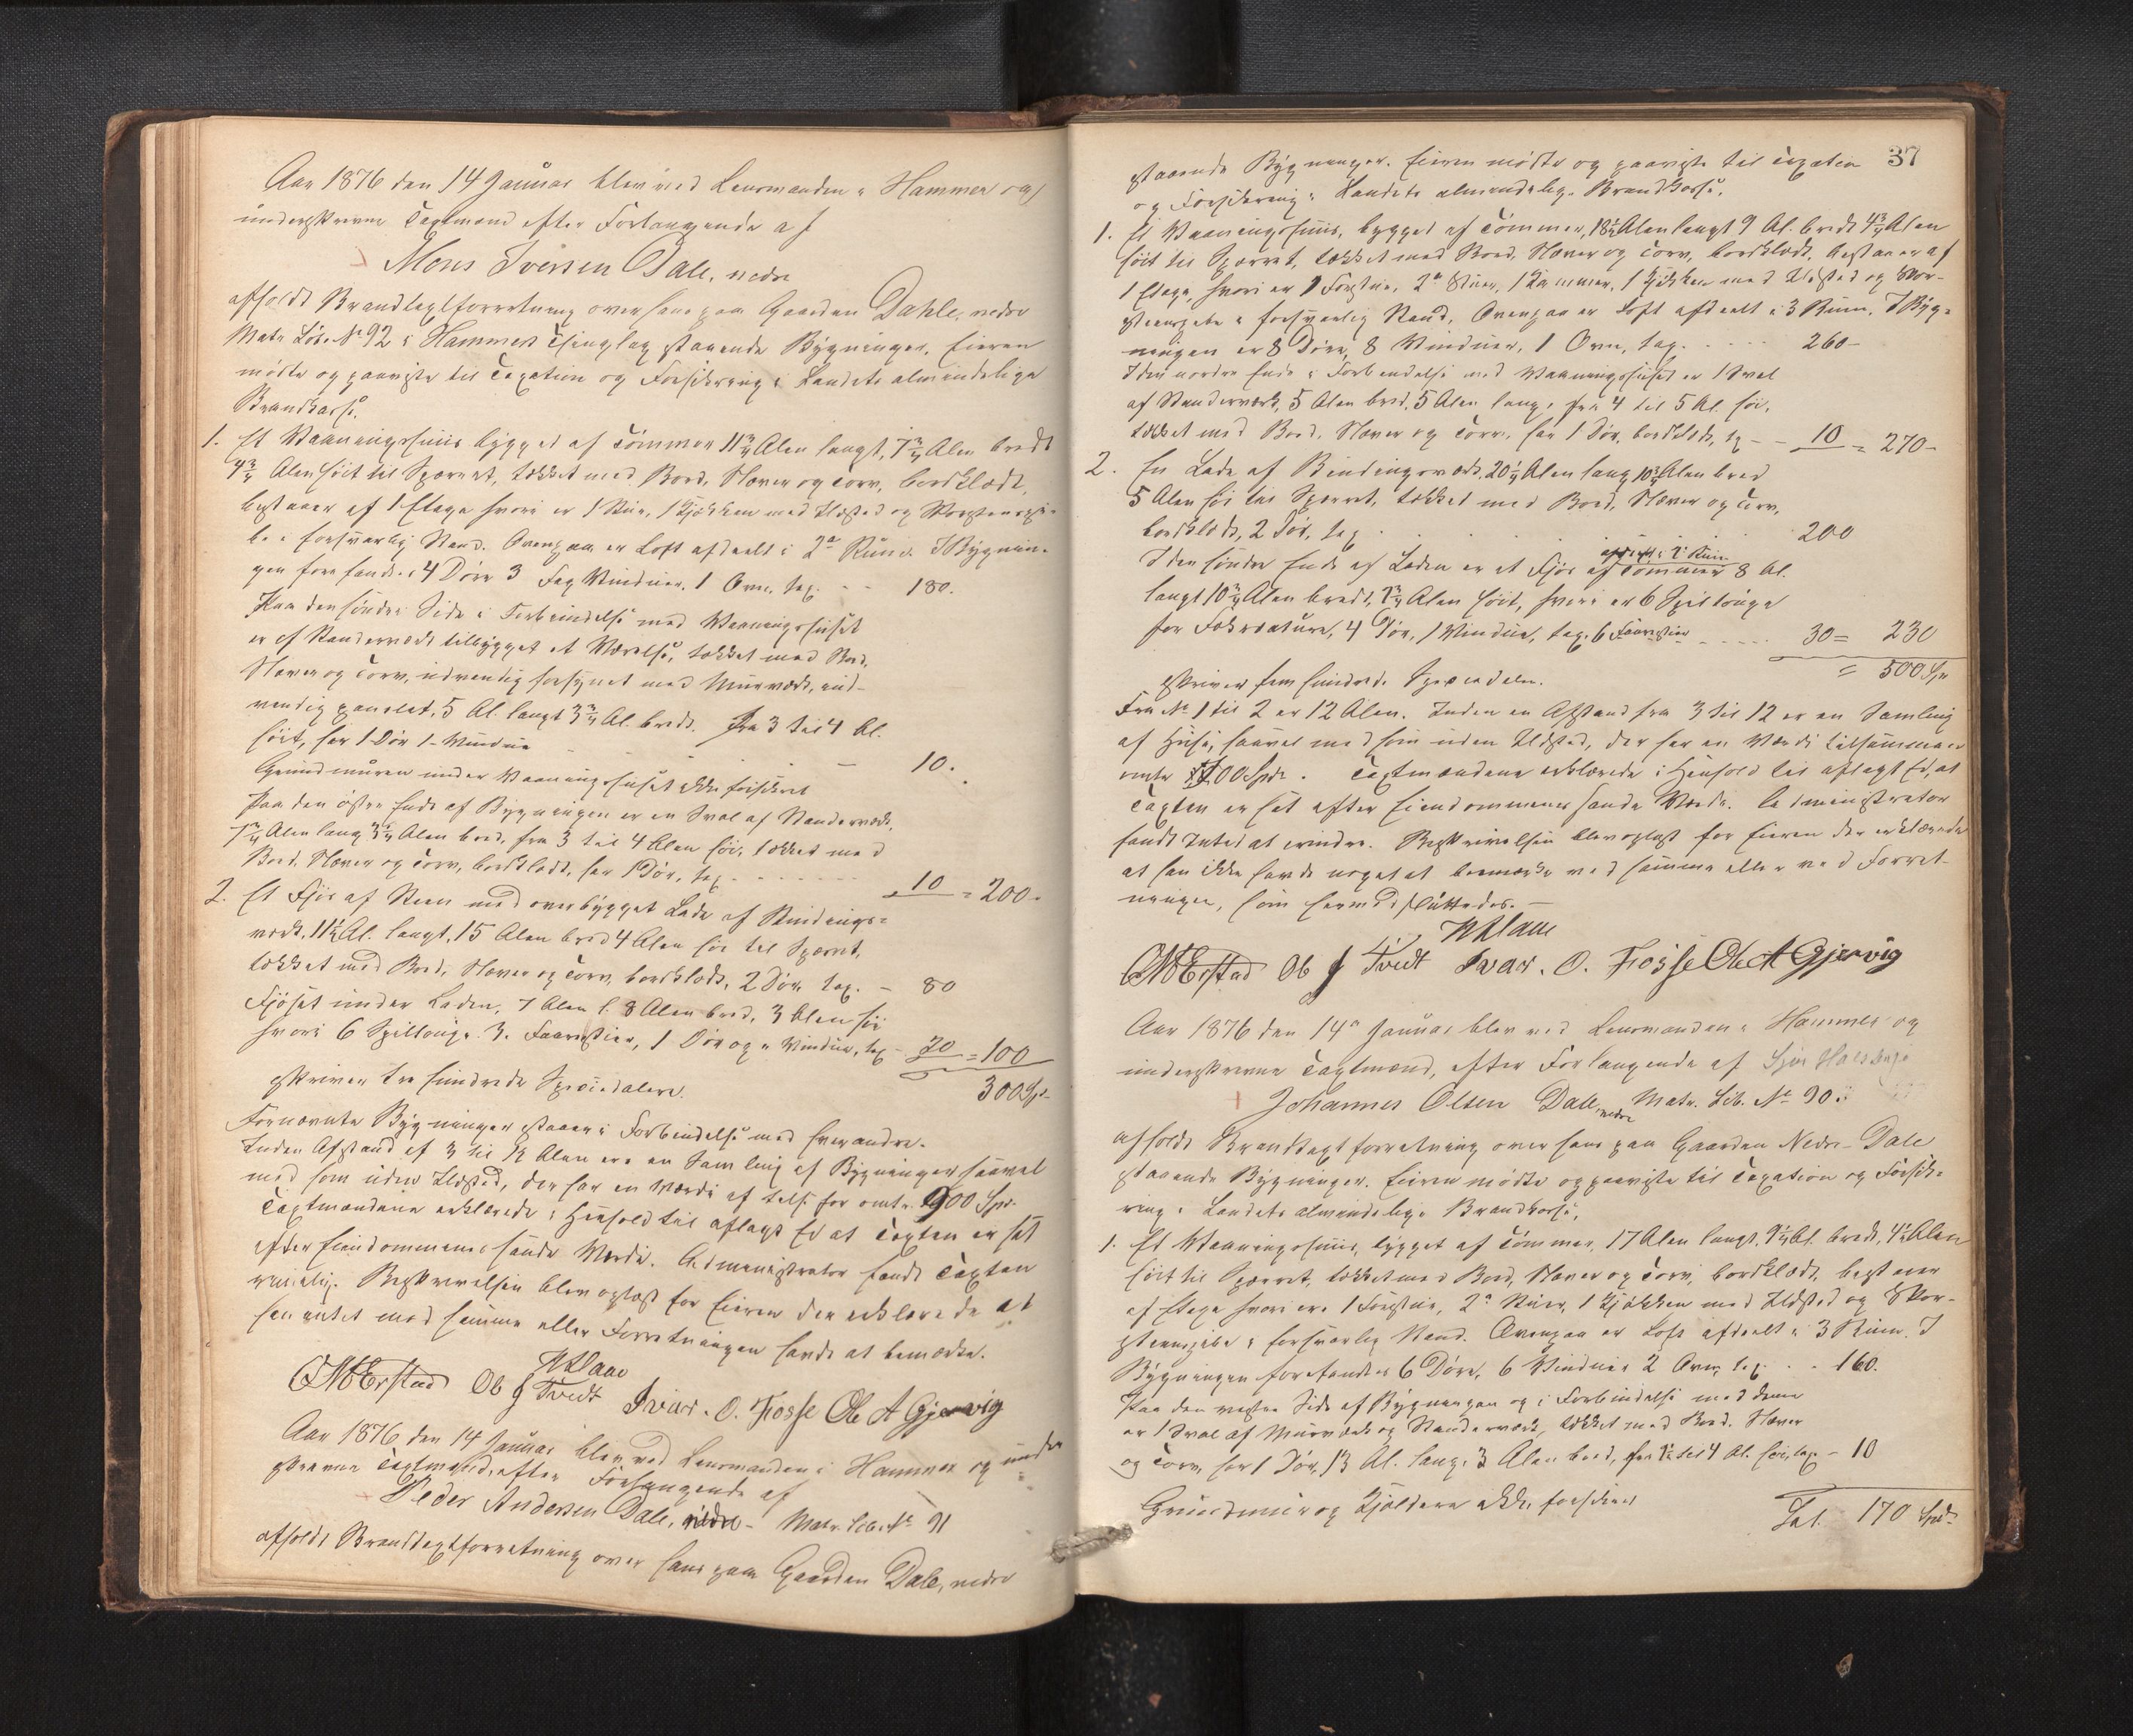 Aar 1876 den 14 Januar blev ved Lensmanden i Hammer og
underskrevne Taxtmænd efter Forlangende af
Mons Iversen Dale, nedre
afholdt Brandtaxtforretning over hans paa Gaarden Dahle, nedre
Matr. Løb. No 92 i Hammers Thinglag staaende Bygninger. Eieren
mødte og paaviste til Taxation og Forsikring i Landets almindelige
Brandkasse.
1. Et Vaaningshuus bygget af Tømmer 11 3/4 Alen langt, 7 3/4 Alen bredt
4 3/4 Alen høit til Sparret, tækket med Bord, Næver og Torv, bordklædt,
bestaaer af 1 Etage hvori er 1 Stue, 1 Kjøkken med Ildsted og Skorstenspi-
be i forsvarlig Stand. Ovenpaa er Loft afdeelt i 2de Rum. I Bygnin-
gen forefandtes 4 Døre 3 Fag Vinduer, 1 Ovn, tax. - - 180.
Paa den søndre Side i Forbindelse med Vaaningshuset
er af Standerværk tilbygget et Værelse, tækket med Bord,
Næver og Torv, udvendig forsynet med Muurværk, ind-
vendig panelet, 5 Al. langt 3 3/4 Al. bredt. fra 3 til 4 Al.
høit, har 1 Dør 1 Vindue - 10.
Grundmuren under Vaaningshuset ikke forsikret
Paa den østre Ende af Bygningen er en Sval af Standerværk,
7 3/4 Alen lang 3 3/4 Alen bred, fra 3 til 4 Alen høi, tækket med
Bord, Næver og Torv, bordklædt, har 1 Dør, tax. 10 = 200.
2. Et Fjøs af Steen med overbygget Lade af Bindings-
værk, 11 1/2 Al. langt, 15 Alen bred 4 Alen høi til Sparret,
tækket med Bord, Næver og Torv, bordklædt, 2 Døre tax. - 80
Fjøset under Laden, 7 Alen l. 8 Alen bred, 3 Alen høi
hvori 6 Spillouge 3 Faarestier, 1 Dør og Vindue, tax 20 = 100
300 Spd.
skriver tre hundrede Speciedaler.
Fornævnte Bygninger staaer i Forbindelse med hverandre.
Inden Afstand af 3 til 12 Alen ere en Samling af Bygninger saavel
med som uden Ildsted, der har en Værdi af tils. for omtr. 900 Spd.
Taxtmændene erklærede i Henhold til aflagt Ed at Taxten er sat
efter Eiendommenes sande Værdi. Administrator fandt Taxten
rimelig. Beskrivelsen blev oplæst for Eieren der erklærede at
han intet med samme eller Forretningen havde at bemærke.
Ob J Tvedt Ivar. O. Fosse Ole A Gjervig
Aar 1876 den 14 Januar blev ved Lensmanden i Hammer og under
skrevne Taxtmænd, efter Forlangende af
Peder Andersen Dale, nedre - Matr. Løb. No 91
afholdt Brandtaxtforretning over hans paa Gaarden Dale, nedre
37
staaende Bygninger. Eieren mødte og paaviste til Taxation
og Forsikring i Landets almindelige Brandkasse.
1. Et Vaaningshuus, bygget af Tømmer, 18 1/2 Alen langt 9 Al. bredt 4 3/4 Alen
høit til Sparret, tækket med Bord, Næver og Torv, bordklædt, bestaaer af
1 Etage, hvori er 1 Forstue, 2de Stuer, 1 Kammer, 1 Kjøkken med Ildsted og Skor-
stenspibe i forsvarlig Stand, Ovenpaa er Loft afdeelt i 3 Rum. I Byg-
ningen er 8 Døre, 8 Vinduer, 1 Ovn, tax. 260 -
I den nordre Ende i Forbindelse med Vaaningshuset er 1 Sval
af Standerværk, 5 Alen bred, 5 Alen lang, fra 4 til 5 Al. høi,
tækket med Bord, Næver og Torv, har 1 Dør, bordklædt, tx - - 10 = 270 -
2. En Lade af Bindingsværk, 20 1/4 Alen lang 10 3/4 Alen bred
5 Alen høi til Sparret, tækket med Bord, Næver og Torv,
bordklædt, 2 Dør, tax 200
I den søndre Ende af Laden er et Fjøs af Tømmer 8 Al.
langt 10 3/4 Alen bredt, 3 3/4 Alen høit, hvori er 6 Spillouge
for Fækreature, 4 Dør, 1 Vindue, tax. 6 Faarestier 30 = 230
= 500 Spd
skriver fem hundrede Speciedaler.
Fra No 1 til 2 er 12 Alen. Inden en Afstand fra 3 til 12 er en Samling
af Huse, saavel med som uden Ildsted, der har en Værdi tilsammen
omtr 00 Spd. Taxtmændene erklærede i Henhold til aflagt Ed, at
Taxten er sat efter Eiendommenes sande Værdi. Administrator
fandt Intet at erindre. Beskrivelsen blev oplæst for Eieren der erklærede
at han ikke havde noget at bemærke ved samme eller ved Forret-
ningen, som hermed sluttedes. -
Ob J Tvedt Ivar. O. Fosse Ole A Gjervig
Aar 1876 den 14de Januar blev ved Lensmanden i Hammer og
underskrevne Taxtmænd, efter Forlangende af
Johannes Olsen Dale, nedre Matr. Løb. No 90.
afholdt Brandtaxtforretning over hans paa Gaarden Nedre Dale
staaende Bygninger. Eieren mødte og paaviste til Taxation og Forsik-
ring i Landets almindelige Brandkasse.
1. Et Vaaningshuus, bygget af Tømmer, 17 Alen langt, 9 1/4 Al. bredt, 4 1/2 Alen
høit til Sparret, tækket med Bord, Næver og Torv, bordklædt, bestaaer
af Etage hvori ere 1 Forstue, 2de Stuer, 1 Kjøkken med Ildsted og Skor-
stenspibe i forsvarlig Stand. Ovenpaa er Loft afdeelt i 3 Rum. I
Bygningen forefandtes 6 Døre, 6 Vinduer 2 Ovne, tax. - - 160.
Paa den vestre Side af Bygningen og i Forbindelse med denne
er 1 Sval af Muurværk og Standerværk, tækket med Bord. Næver
og Torv, har 1 Dør, 13 Al. lang, 3 Alen bred, fra til 4 Al. høi, tax. - 10
Grundmuur og Kjældere ikke forsikret
Tal. 170 Spd.